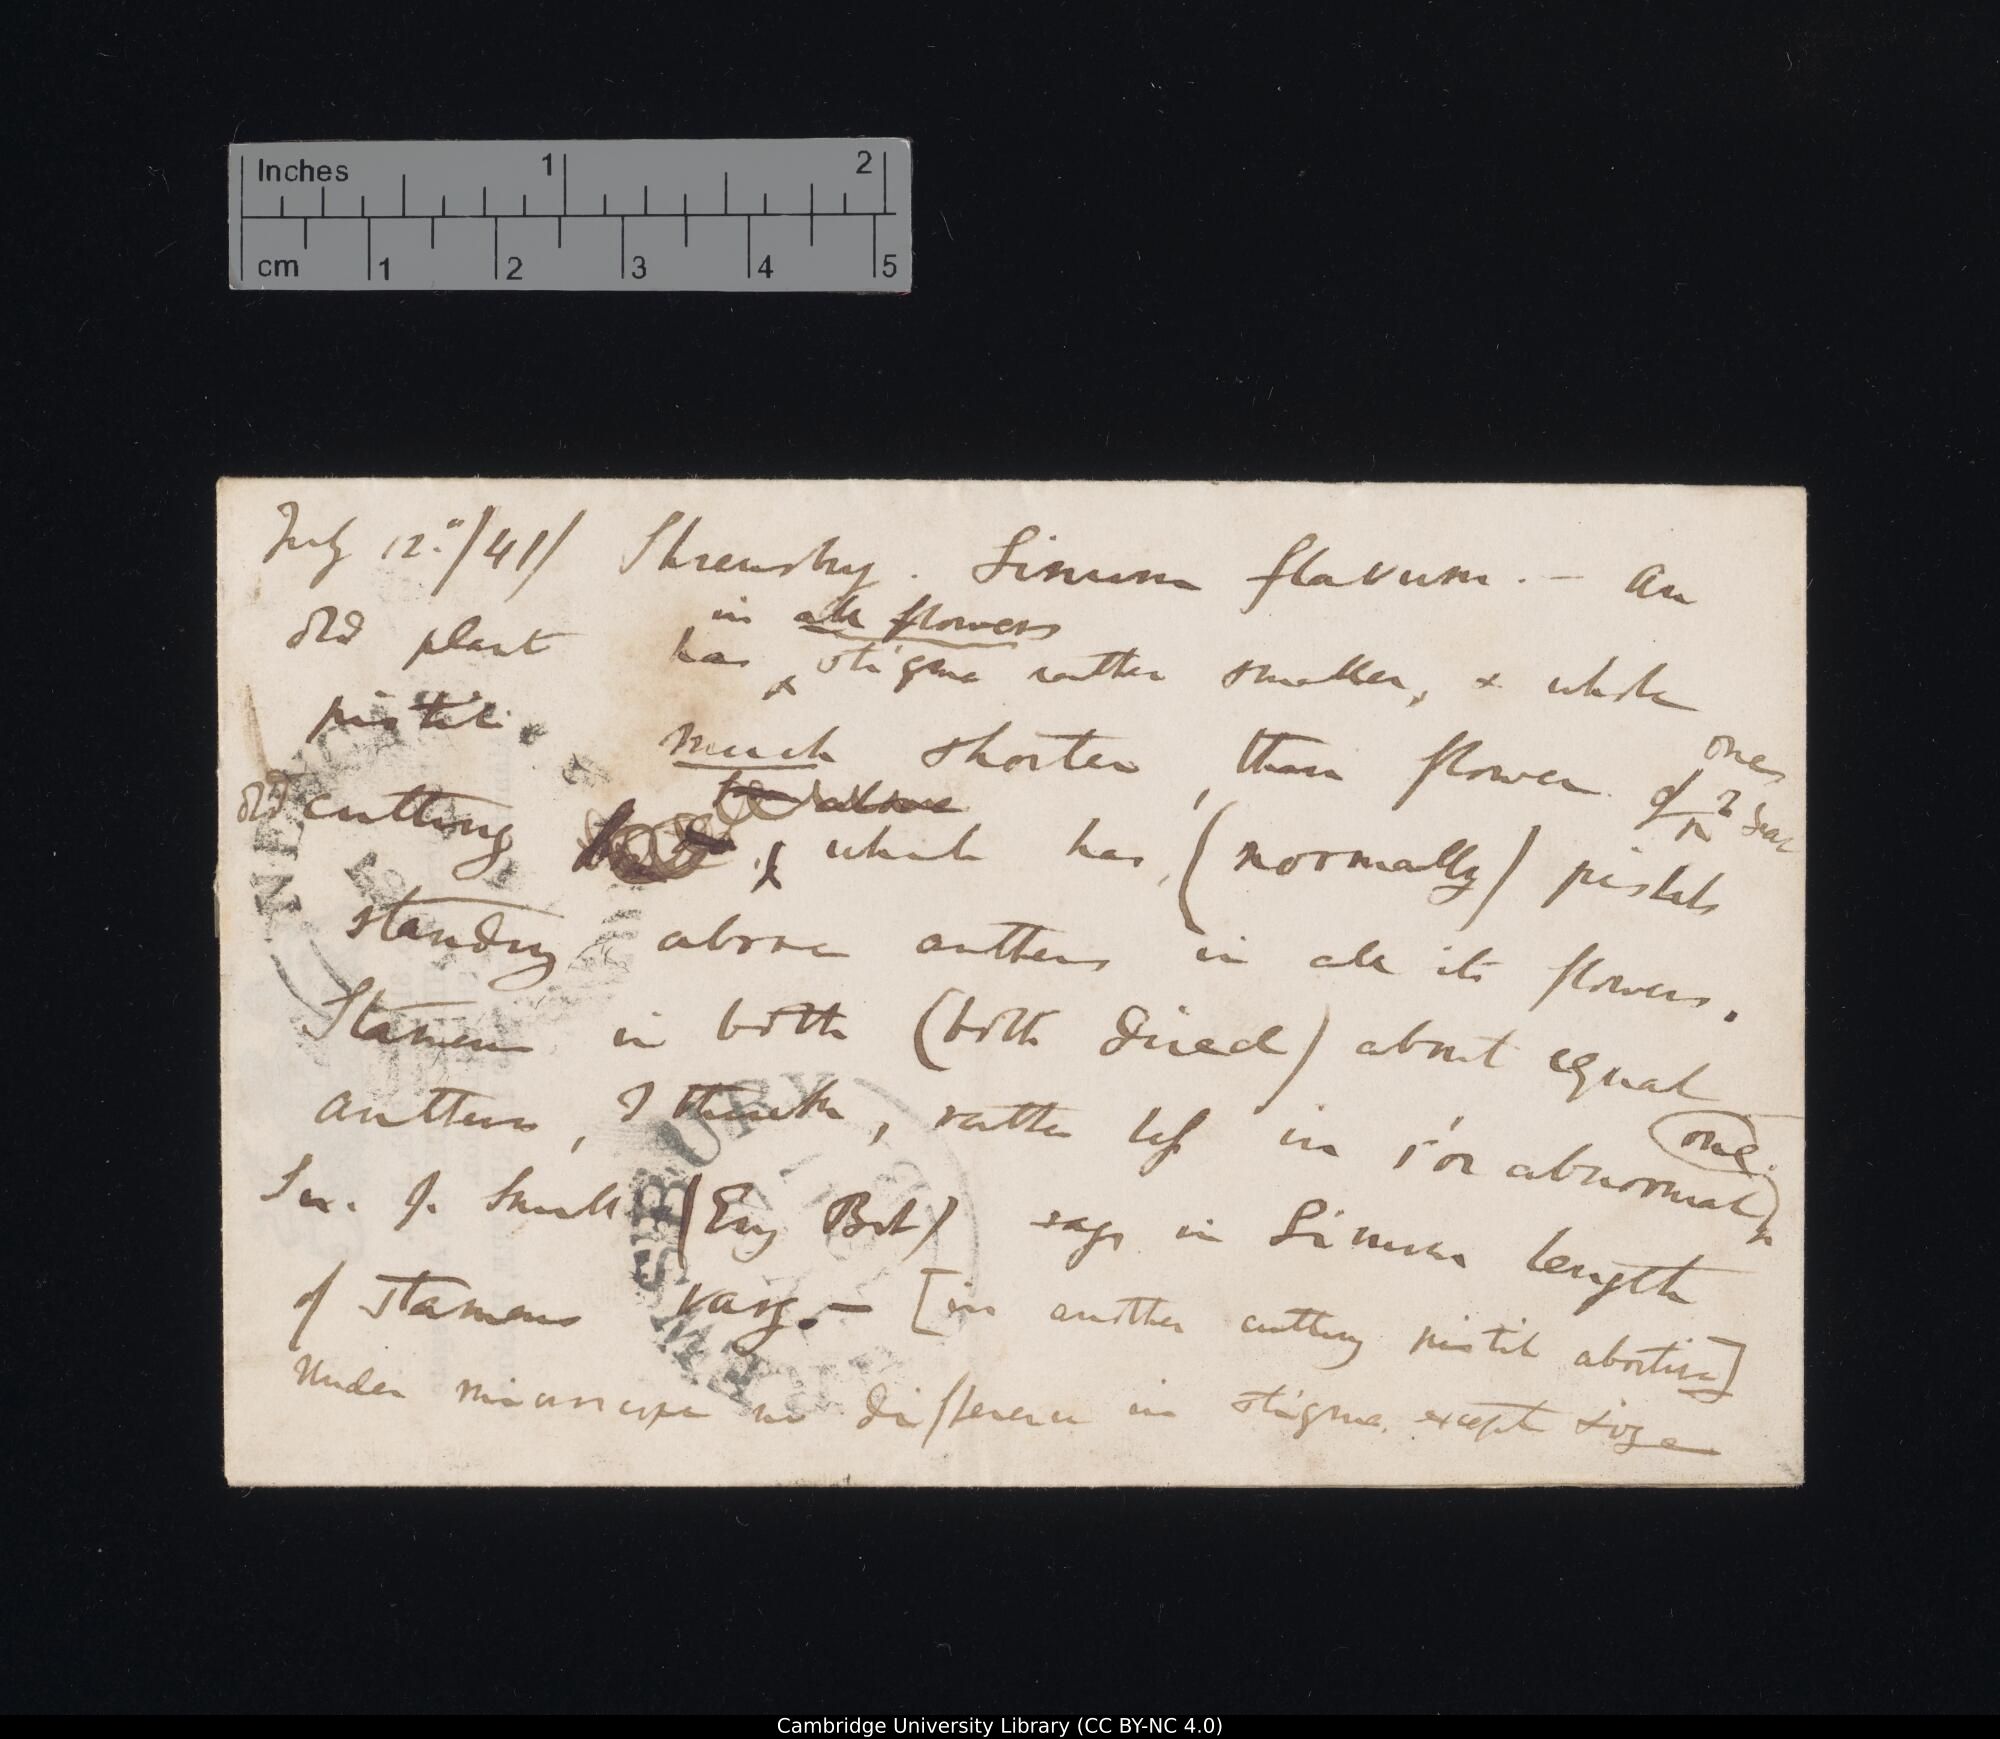 Inches 1 2
cm 1 2 3 4 5
July 12.th/41/ Shrewsbry. Linum flavum. — An
in all flowers
old plant has stigma rather smaller, & whole
pistil. much shorter, than flower of 2 year
ones
old cutting which has, (normally) pistils
above
standing above anthers in all its flowers.
Stamens in both (both dried) about equal
anthers, I think, rather less in 1st or abnormal
one.
Sir. J. Smith (Eng Bot) says in Linum length
of stamens vary. — [in another cutting pistil abortive]
Under microscope no difference in stigma. except size
SBURY
Cambridge University Library (CC BY-NC 4.0)